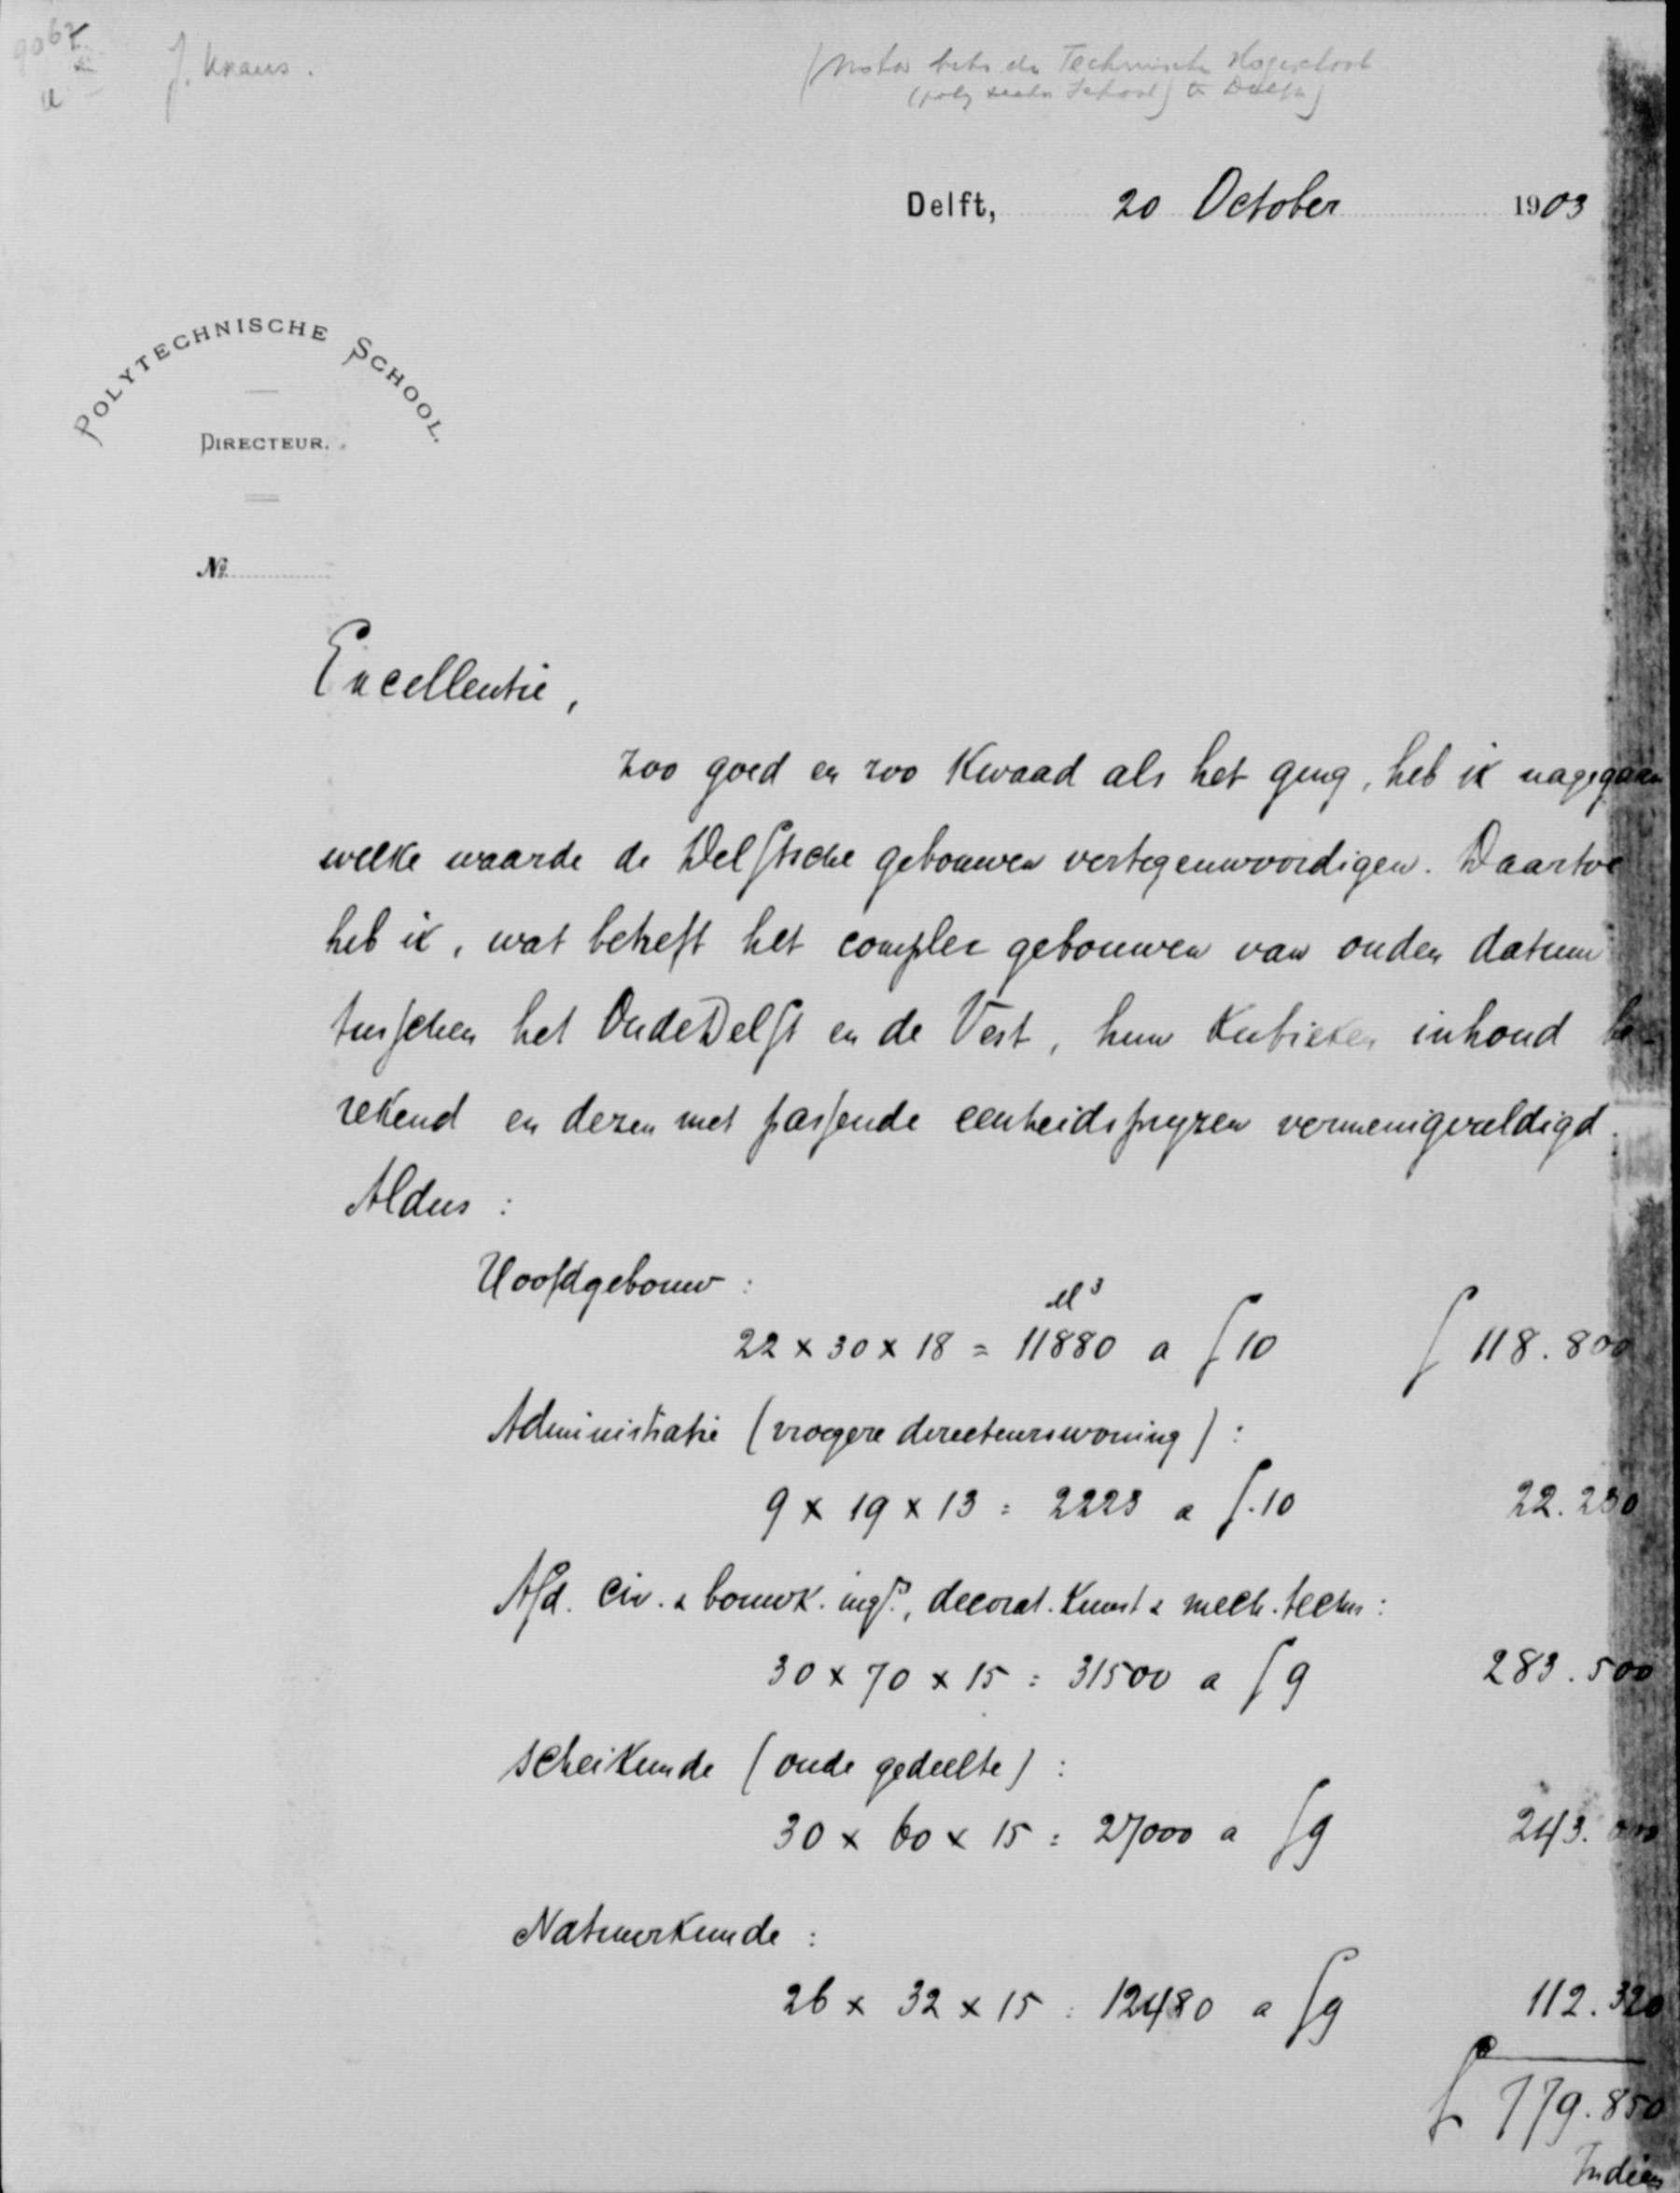 J. Kraus.
(Nota betr. de Technische Hogeschool
(polytechn School) te Delft)
Delft, 20 October 1903
POLYTECHNISCHE SCHOOL.
DIRECTEUR.
No.
Excellentie,
zoo goed en zoo kwaad als het ging, heb ik nagegaan
welke waarde de Delftsche gebouwen vertegenwoordigen. Daartoe
heb ik, wat betreft het complex gebouwen van ouden datum
tusschen het Oude Delft en de Vest, hun kubieken inhoud be-
rekend en dezen met passende eenheidsprijzen vermenigvuldigd.
Aldus :
Hoofdgebouw :
M³
22 x 30 x 18 = 11880 a f 10 f 118.800
Administratie (vroegere directeurswoning) :
9 x 19 x 13 = 2223 a f. 10 22.230
Afd. civ. & bouwk. ingrs., decorat. kunst & mech. techn :
30 x 70 x 15 = 31500 a f 9 283.500
Scheikunde (oude gedeelte) :
30 x 60 x 15 = 27000 a f 9 243.000
Natuurkunde :
26 x 32 x 15 = 12480 a f 9 112.320
f 779.850
Indien